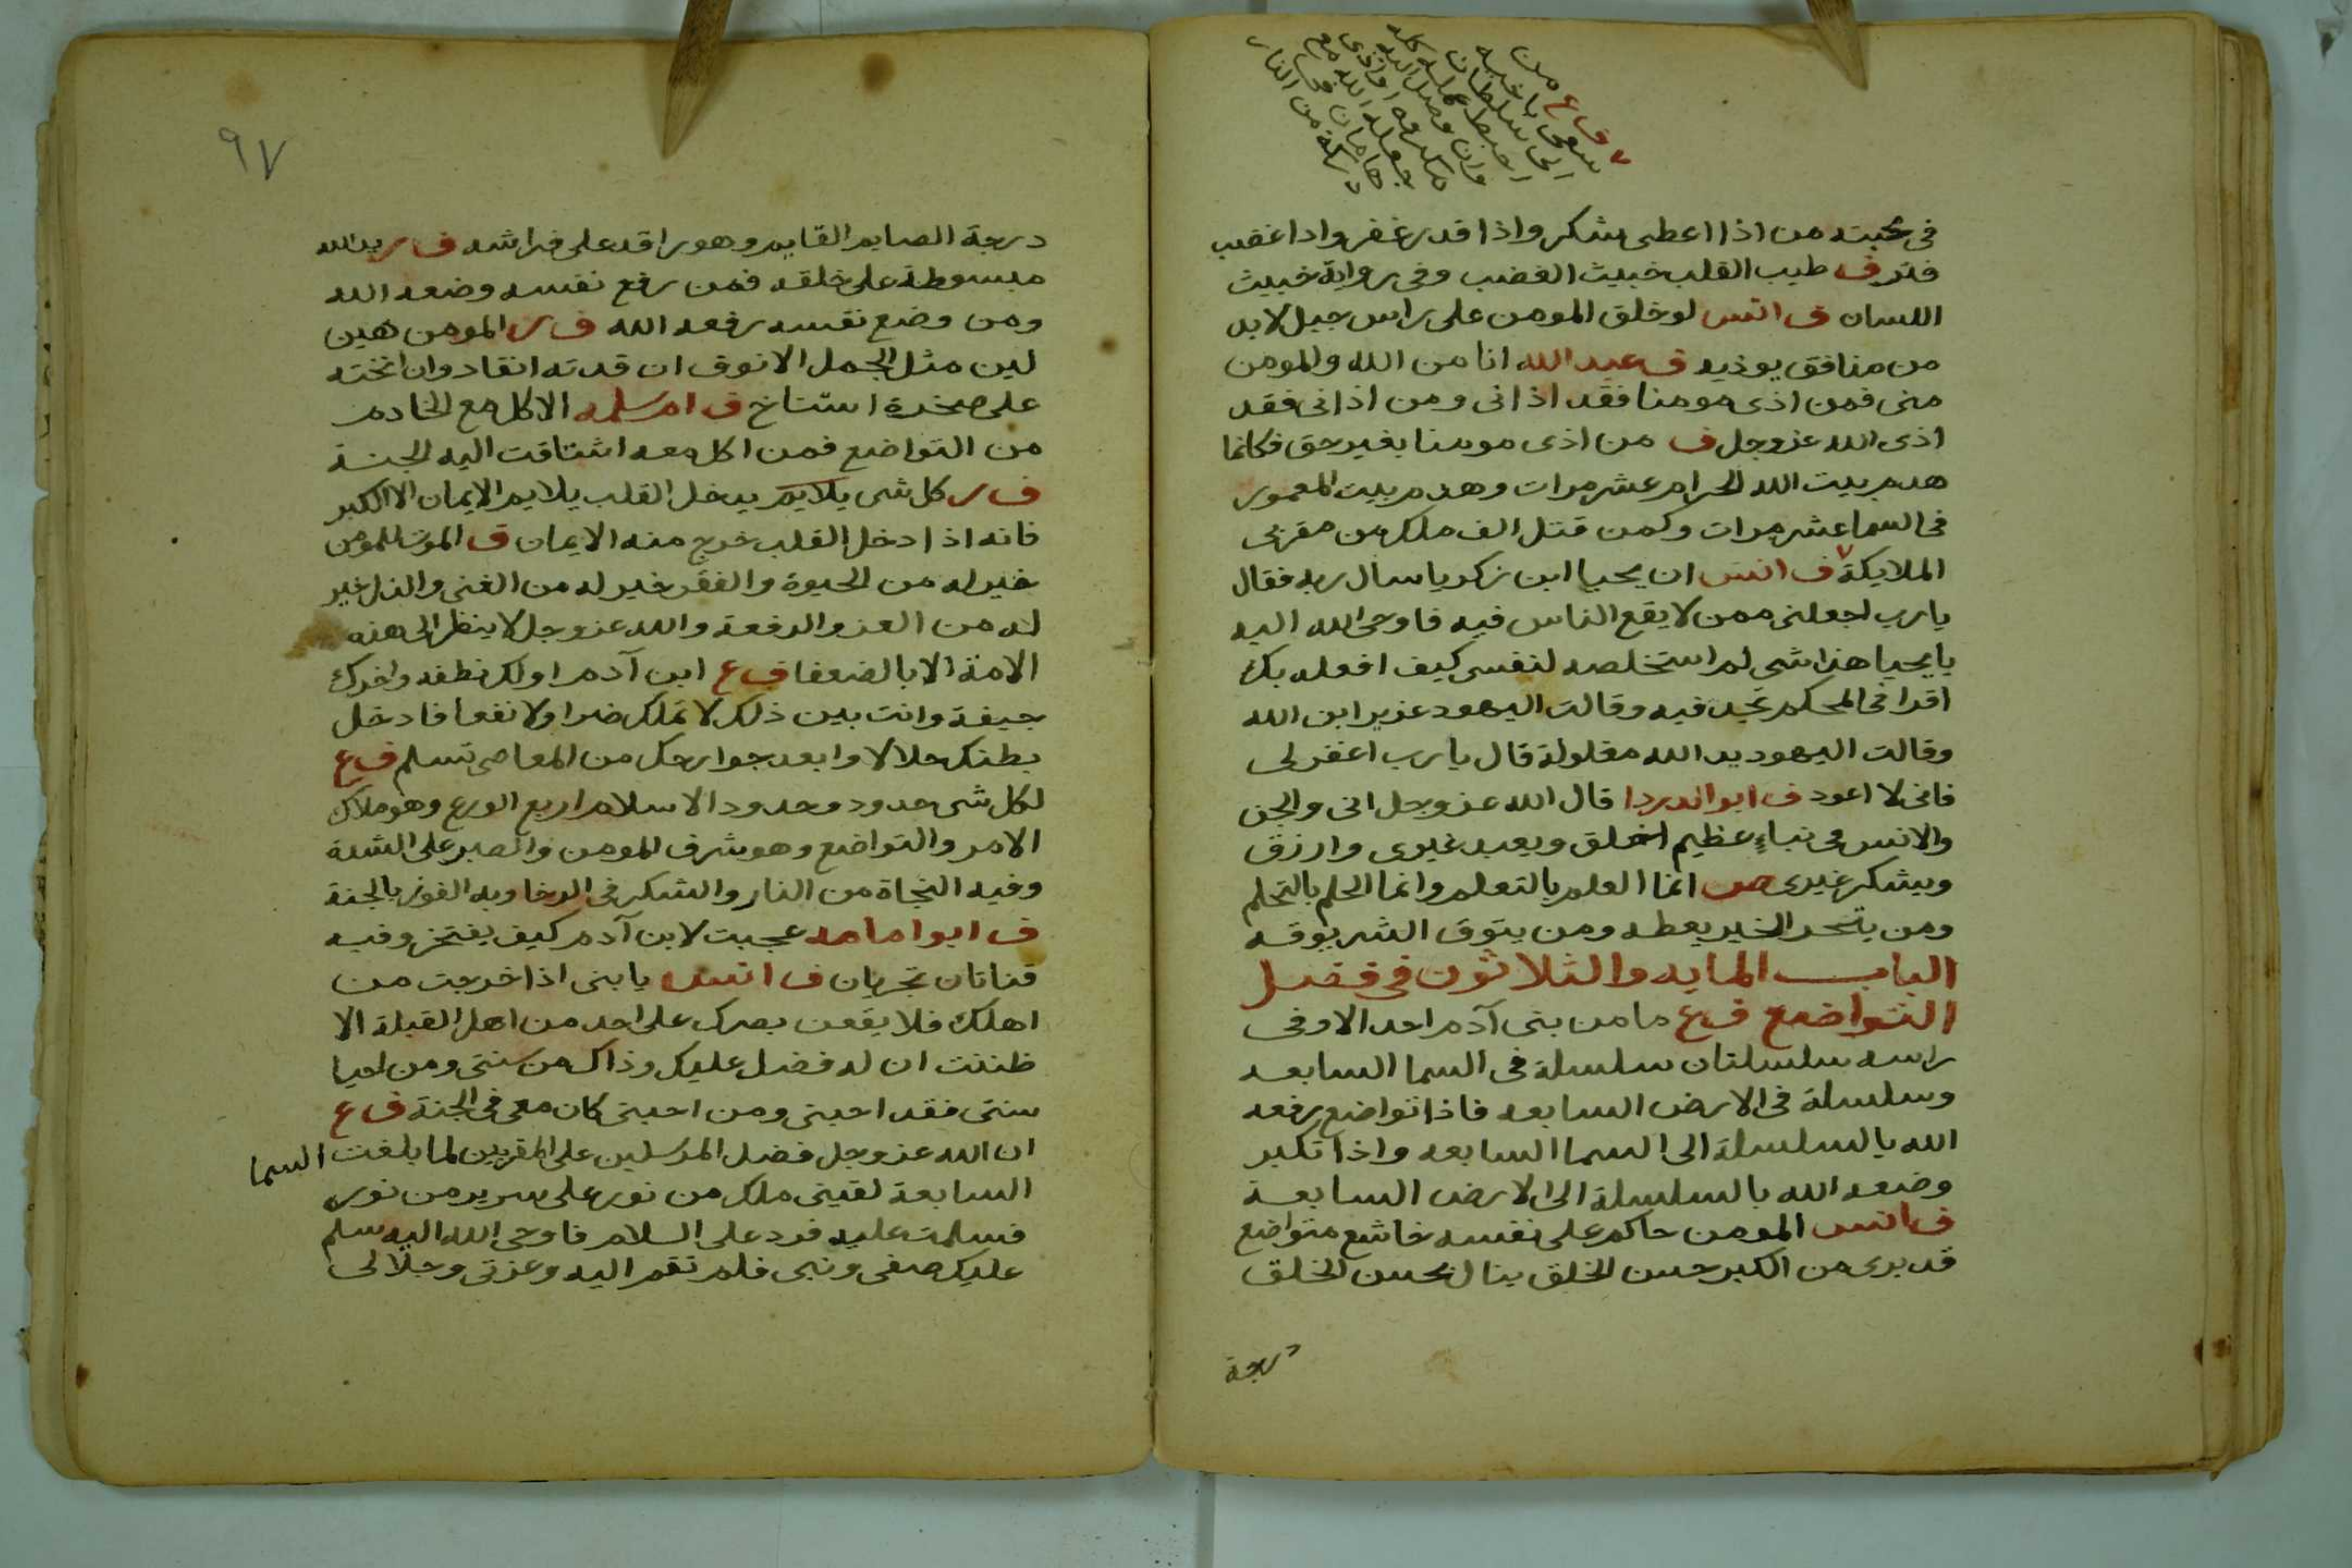 ف ع من
سعى باخيه
الى سلطان
احبط عمله كله
وان وصل اليه
مكروه او اذى
جعله الله مع
هامان فى
درجة من النار
فى محبته من اذا اعطى شكر واذا قدر غفر واذا غضب
فتر ف طيب القلب خبيث الغضب وفى رواية خبيث
اللسان ف انس لو خلق المومن على راس جبل لا بد
من منافق يوذيه ف عبد الله انا من الله والمومن
منى فمن اذى مومنا فقد اذانى ومن اذانى فقد
اذى الله عز وجل ف من اذى مومنا بغير حق فكانما
هدم بيت الله الحرام عشر مرات وهدم بيت المعمور
فى السما عشر مرات وكمن قتل الف ملك من مقربى
الملايكة ف انس ان يحيا ابن زكريا سال ربه فقال
يا رب اجعلنى ممن لا يقع الناس فيه فاوحى الله اليه
يا يحيا هذا شى لم استخلصه لنفسى كيف افعله بك
اقرا فى المحكم تجد فيه وقالت اليهود عزير ابن الله
وقالت اليهود يد الله مغلولة قال يا رب اغفر لى
فانى لا اعود ف ابو الدردا قال الله عز وجل انى والجن
والانس فى نباءٍ عظيم اخلق ويعبد غيرى وارزق
ويشكر غيرى ص انما العلم بالتعلم وانما الحلم بالتحلم
ومن يتحر الخير يعطه ومن يتوق الشر يوقه
الباب المايه والثلاثون فى فضل
التواضع ف ع ما من بنى آدم احد الا وفى
راسه سلسلتان سلسلة فى السما السابعه
وسلسلة فى الارض السابعه فاذا تواضع رفعه
الله بالسلسلة الى السما السابعه واذا تكبر
وضعه الله بالسلسلة الى الارض السابعة
ف انس المومن حاكم على نفسه خاشع متواضع
قد برى من الكبر حسن الخلق ينال بحسن الخلق
درجة
٩٧
درجة الصايم القايم وهو راقد على فراشه ف ر يد الله
مبسوطة على خلقه فمن رفع نفسه وضعه الله
ومن وضع نفسه رفعه الله ف ر المومن هين
لين مثل الجمل الانوف ان قدته انقاد وان انخته
على صخرة استناخ ف ام سلمه الاكل مع الخادم
من التواضع فمن اكل معه اشتاقت اليه الجنة
ف ر كل شى يلايم يدخل القلب يلايم الايمان الا الكبر
فانه اذا دخل القلب خرج منه الايمان ف الموت للمومن
خير له من الحيوة والفقر خير له من الغنى والذل خير
له من العز والرفعة والله عز وجل لا ينظر الى هذه
الامة الا بالضعفا ف ع ابن آدم اولك نطفه واخرك
جيفة وانت بين ذلك لا تملك ضرا ولا نفعا فادخل
بطنك حلالا وابعد جوارحك من المعاصى تسلم ف ع
لكل شى حدود وحدود الاسلام اربع الورع وهو ملاك
الامر والتواضع وهو شرف المومن والصبر على الشدة
وفيه النجاة من النار والشكر فى الرخا وبه الفوز بالجنة
ف ابو امامه عجبت لابن آدم كيف يفتخر وفيه
قناتان تجريان ف انس يا بنى اذا خرجت من
اهلك فلا يقعن بصرك على احد من اهل القبلة الا
ظننت ان له فضل عليك وذاك من سنتى ومن احيا
سنتى فقد احبنى ومن احبنى كان معى فى الجنة ف ع
ان الله عز وجل فضل المرسلين على المقربين لما بلغت السما
السابعة لقينى ملك من نور على سرير من نور
فسلمت عليه فرد على السلام فاوحى الله اليه سلم
عليك صفى ونبى فلم تقم اليه وعزتى وجلالى